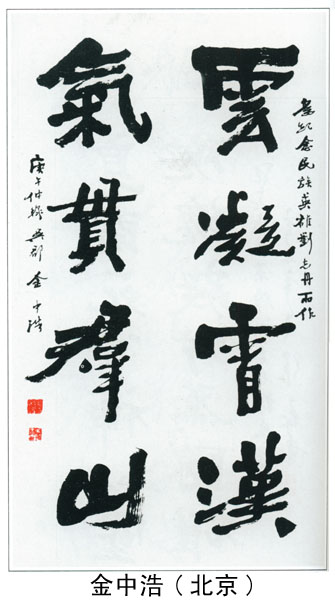 為紀念民族英雄劉志丹而作
雲凝霄漢
氣貫群山
庚午仲秋吳郡金中浩
金中浩（北京）